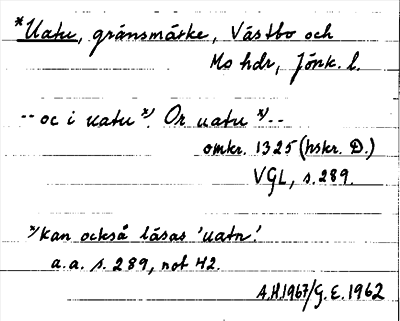 *Uatu, gränsmärke, Västbo och
Mo hdr, Jönk. l.
-- oc i uatu x). Or uatu x)--
omkr. 1325 (hskr. D.)
VGL, s. 289.
x) Kan också läsas 'uatn'.
a.a. s. 289, not 42.
A.H.1967/G.E.1962